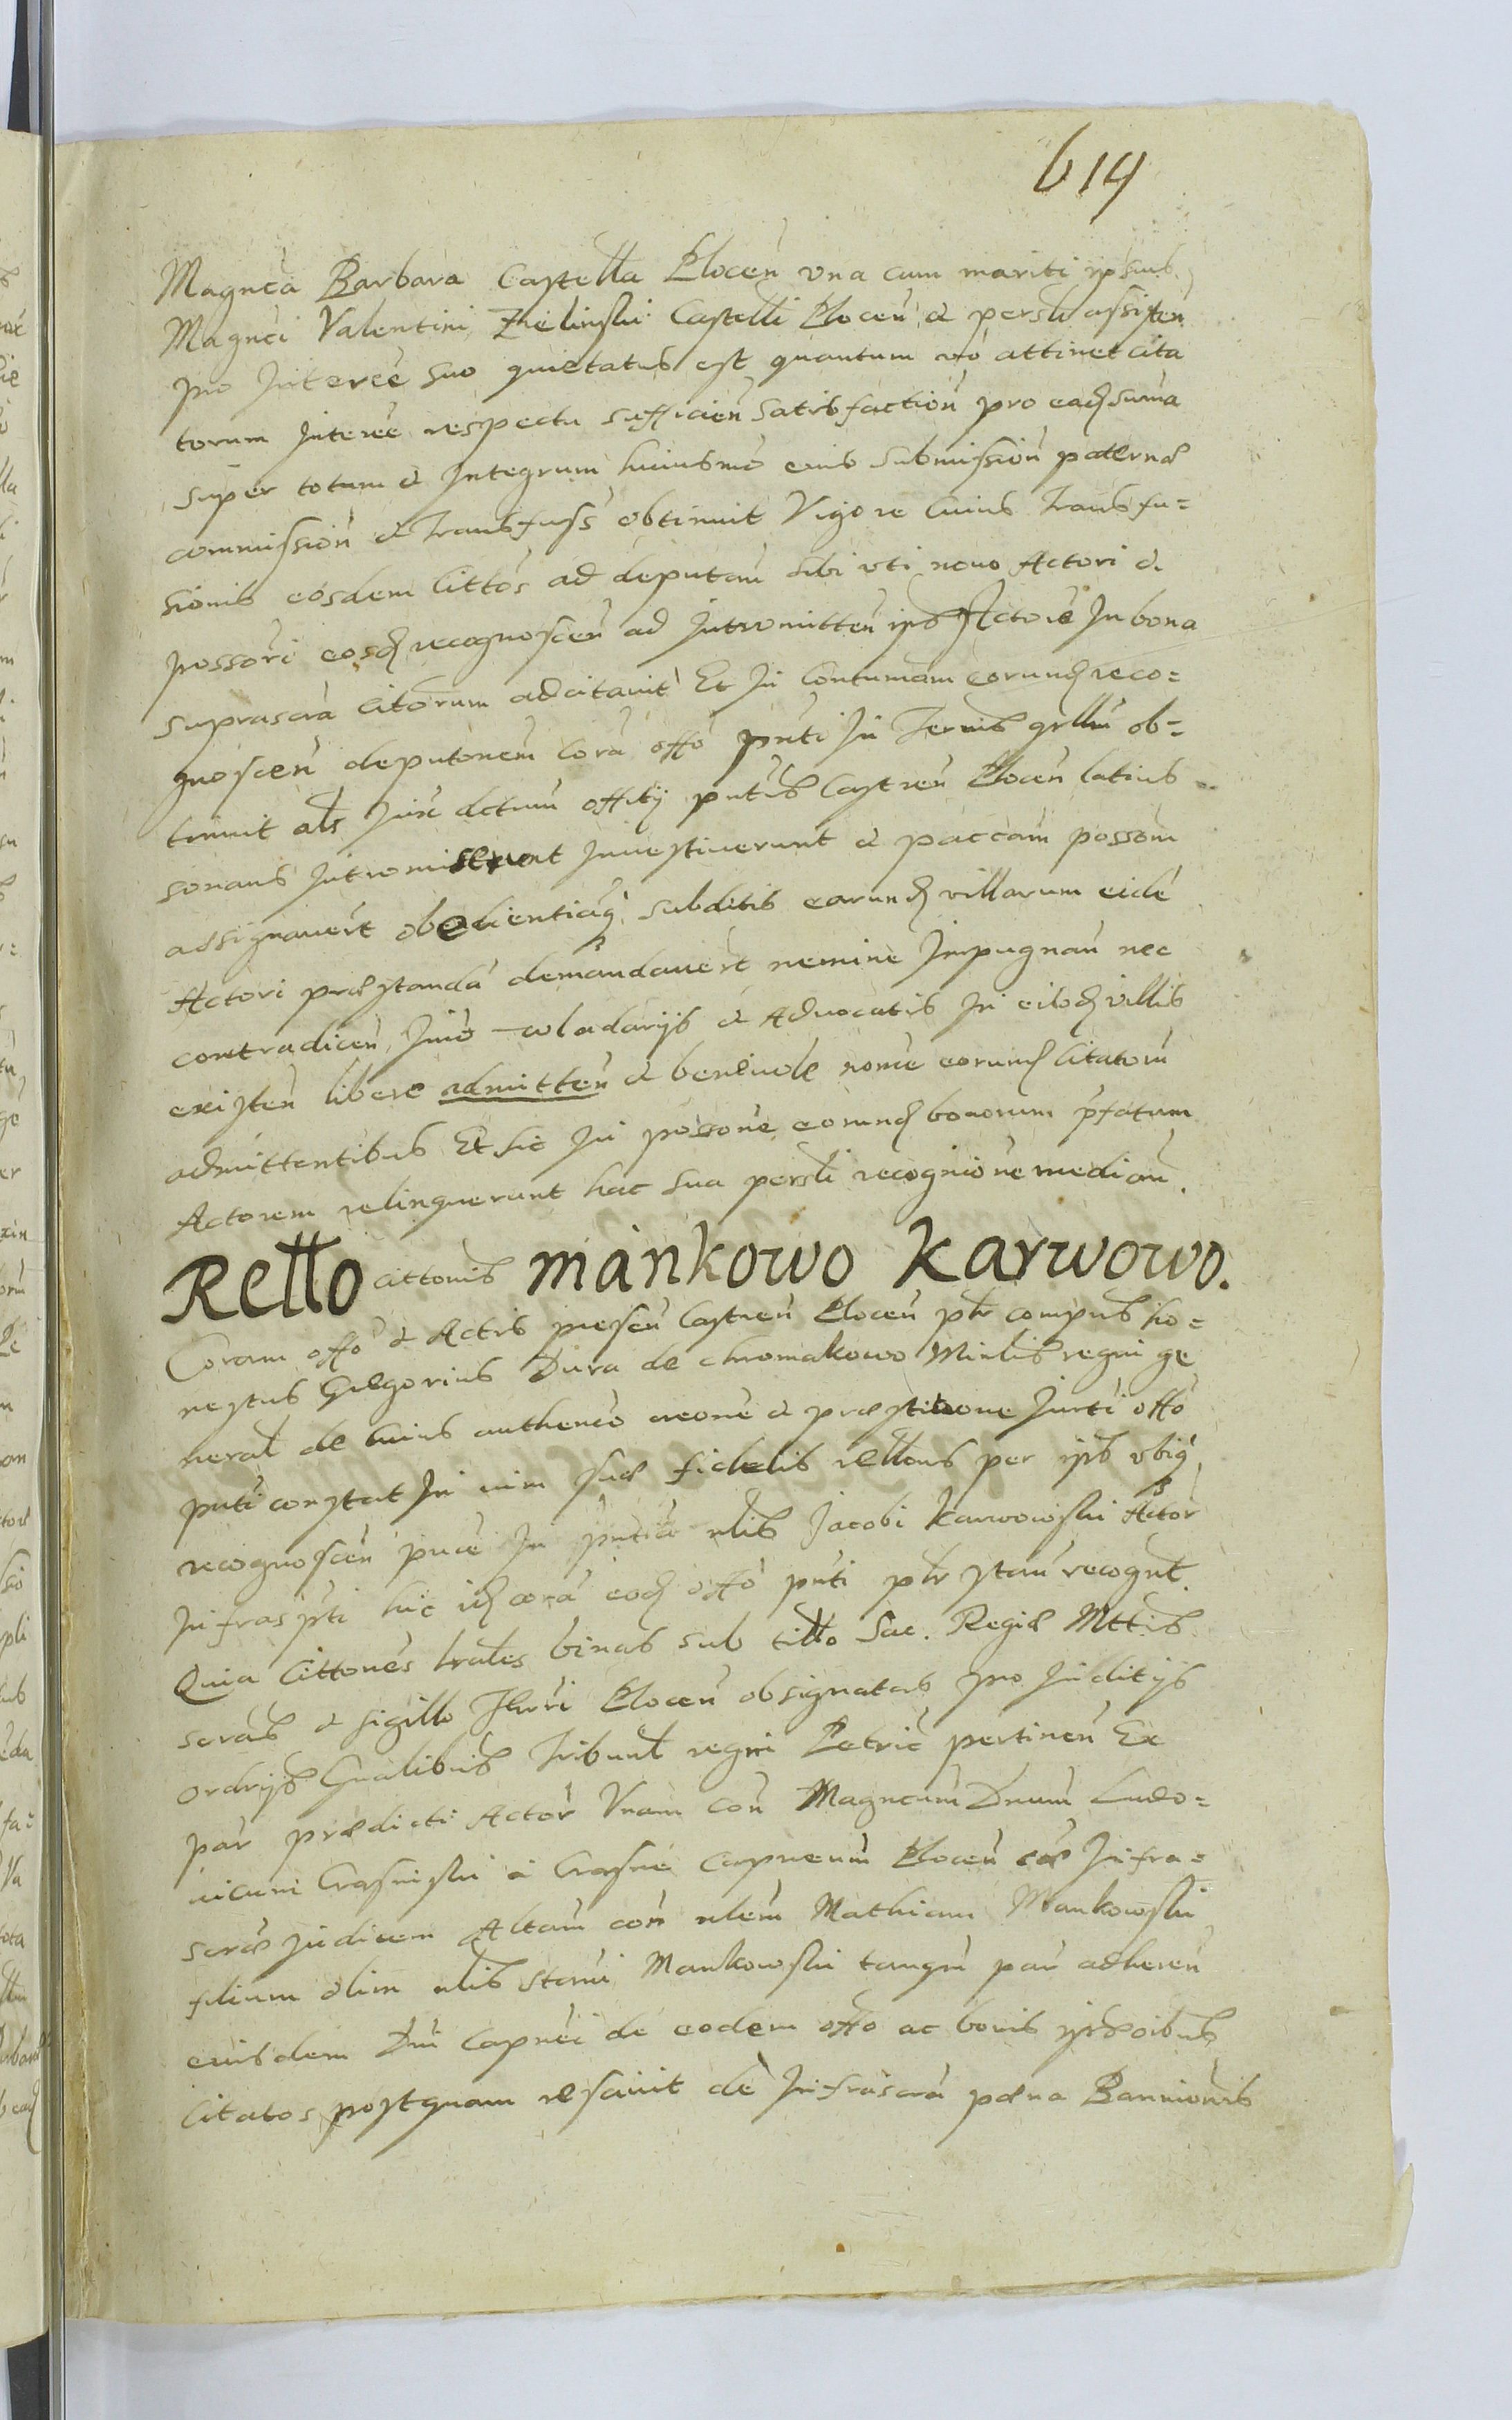 614
Magnca Barbara Castella Plocen una cum mariti ipsius
Magnci Valentini Zielinski Castelli Plocen & persli assisten
pro Interee suo quietatus est quantum vo attinet cita
torum Interee respectu sufficien satisfaction pro eadq suma
super totum & Integrum huiusmo eius submission paterna
commission & transfuss obtinuit Vigore cuius transfu=
sionis eosdem cittos ad deputam sibi uti novo Actori &
possori eosdq recognoscen ad Intromitten ips Actore In bona
suprascra citorum adcitavit Et In Contumam eorundq reco=
gnoscen deputonem Cora offo pnti In Termis qrllm ob=
tinuit als Iux actum offity pntis Castren Plocen latius
sonans Intromiserunt Investiverunt & paccam possom
assignavert obedientiaq subditis earundq villarum eide
Actori præstanda demandavert nemine Impugnan nec
contradicen Imo wlodarijs & Advocatis In eisdq villis
existen libere admitten & benivole nomie eorundq Citatoru
admittentibus Et sic In possone eorundq bonorum pfatum
Actorem relinquerunt hac sua persli recognicione median.
Retto cittonis mankowo Karwowo.
Coram offo & Actis presen Castren Plocen pltr compns ho=
nestus Gregorius Dura de chromakowo Minlis regni ge
neral de cuius authenco creone & præstitione Iurti offo
pnti constat In vim suæ fidelis rellons per ips ubiq
recognoscen puce In pntia nlis Jacobi Karwowski Actor
Infraspti hic idq cora eodq offo pnti pltr stan recognt
Quia Cittones lrales binas sub titlo Sac. Regiæ Mttis
scras & sigillo Thrri Plocen obsignatas pro Juditijs
ordrijs Gnalibus Tribunl regni Petric pertinen Ex
par prædicti Actor Unam con Magncum Dnum Ludo=
vicum Crasinski a Crasne Capneum Plocen Infra=
scræ judicem Altam con nlem Mathiam Mankowski
filium olim nlis Stani Mankowski tangn par adheren
eiusdem Dni Capnei de eodem offo ac bonis ipsoibus
Citatos postquam resavit de Infrascra pæna Bannionis